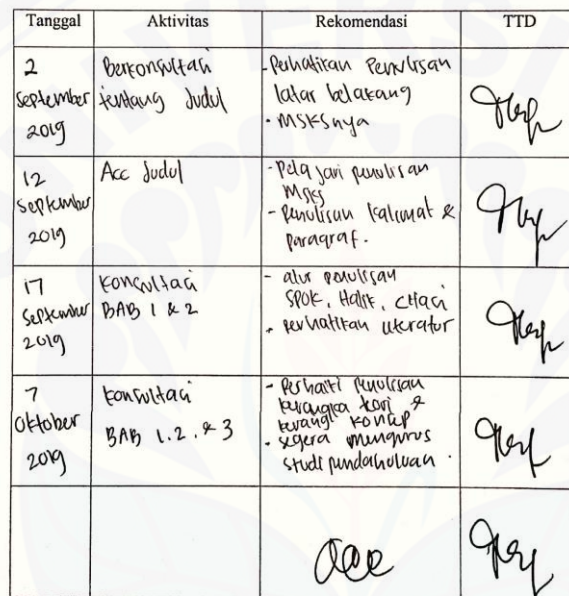 Tanggal Aktivitas Rekomendasi TTD
2 September 2019
Berkonsultasi
tentang Judul
- Perhatikan Penulisan
latar belakang
- MSKSnya
12 September 2019
Acc Judul
- Pelajari penulisan
MSKS
- Penulisan kalimat &
paragraf.
17 September 2019
Konsultasi
BAB 1 & 2
- alur penulisan
SPOK, Halik, citasi
- Perhatikan literatur
7 Oktober 2019
Konsultasi
BAB 1, 2, & 3
- Perhatikan penulisan
kerangka teori &
kerangka konsep
- segera mengurus
studi pendahuluan.
acc